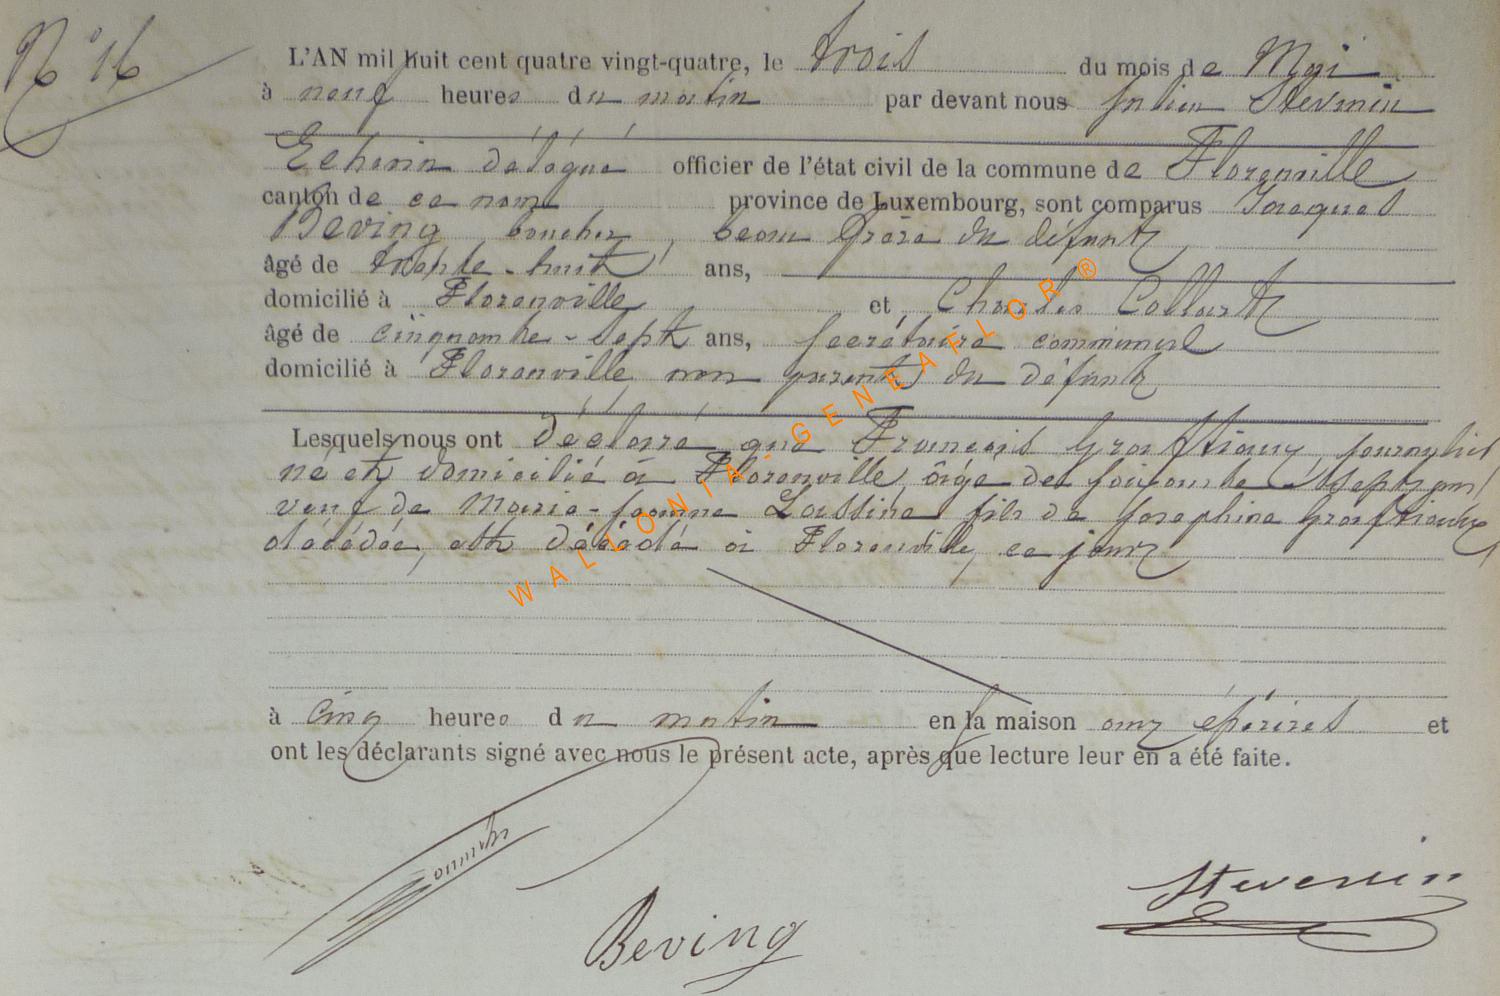 N° 16
L'AN mil huit cent quatre vingt-quatre, le trois du mois de Mai
à neuf heures du matin par devant nous Julien Stevenin
Echevin délégué officier de l'état civil de la commune de Florenville
canton de ce nom province de Luxembourg, sont comparus Jacques
Beving boucher, beau frère du défunt,
âgé de trente-huit ans,
domicilié à Florenville et Charles Collart
âgé de cinquante-sept ans, secrétaire communal
domicilié à Florenville, non parent du défunt
Lesquels nous ont déclaré que François journalier
né et domicilié à Florenville, âgé de soixante sept ans,
veuf de Marie-Jeanne fils de Josephine
décédée, est décédé à Florenville, ce jour
à cinq heures du matin en la maison aux et
ont les déclarants signé avec nous le présent acte, après que lecture leur en a été faite.
Beving
Stevenin
WALLONIA-GENEAFLOR®